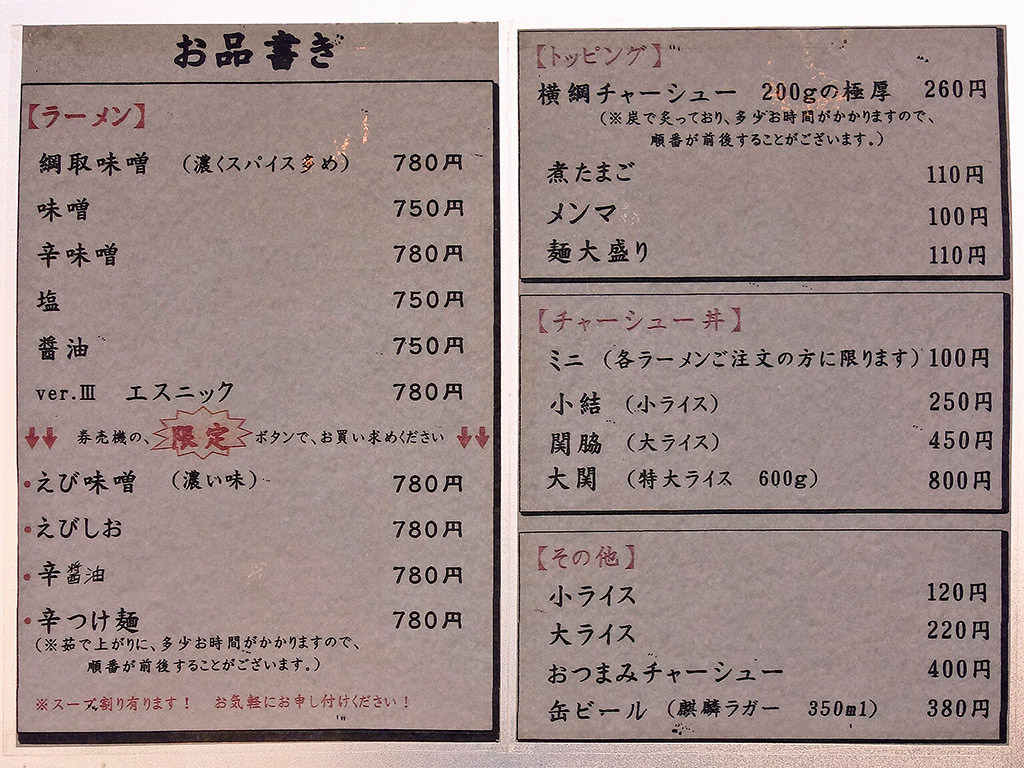 お品書き
【ラーメン】
綱取味噌 (濃くスパイス多め) 780円
味噌 750円
辛味噌 780円
塩 750円
醤油 750円
ver.Ⅲ エスニック 780円
券売機の、限定ボタンで、お買い求めください
・えび味噌 (濃い味) 780円
・えびしお 780円
・辛醤油 780円
・辛つけ麺 780円
(※茹で上がりに、多少お時間がかかりますので、
順番が前後することがございます。)
※スープ割り有ります! お気軽にお申し付けください!
【トッピング】
横綱チャーシュー 200gの極厚 260円
(※炭で炙っており、多少お時間がかかりますので、
順番が前後することがございます。)
煮たまご 110円
メンマ 100円
麺大盛り 110円
【チャーシュー丼】
ミニ (各ラーメンご注文の方に限ります) 100円
小結 (小ライス) 250円
関脇 (大ライス) 450円
大関 (特大ライス 600g) 800円
【その他】
小ライス 120円
大ライス 220円
おつまみチャーシュー 400円
缶ビール (麒麟ラガー 350ml) 380円